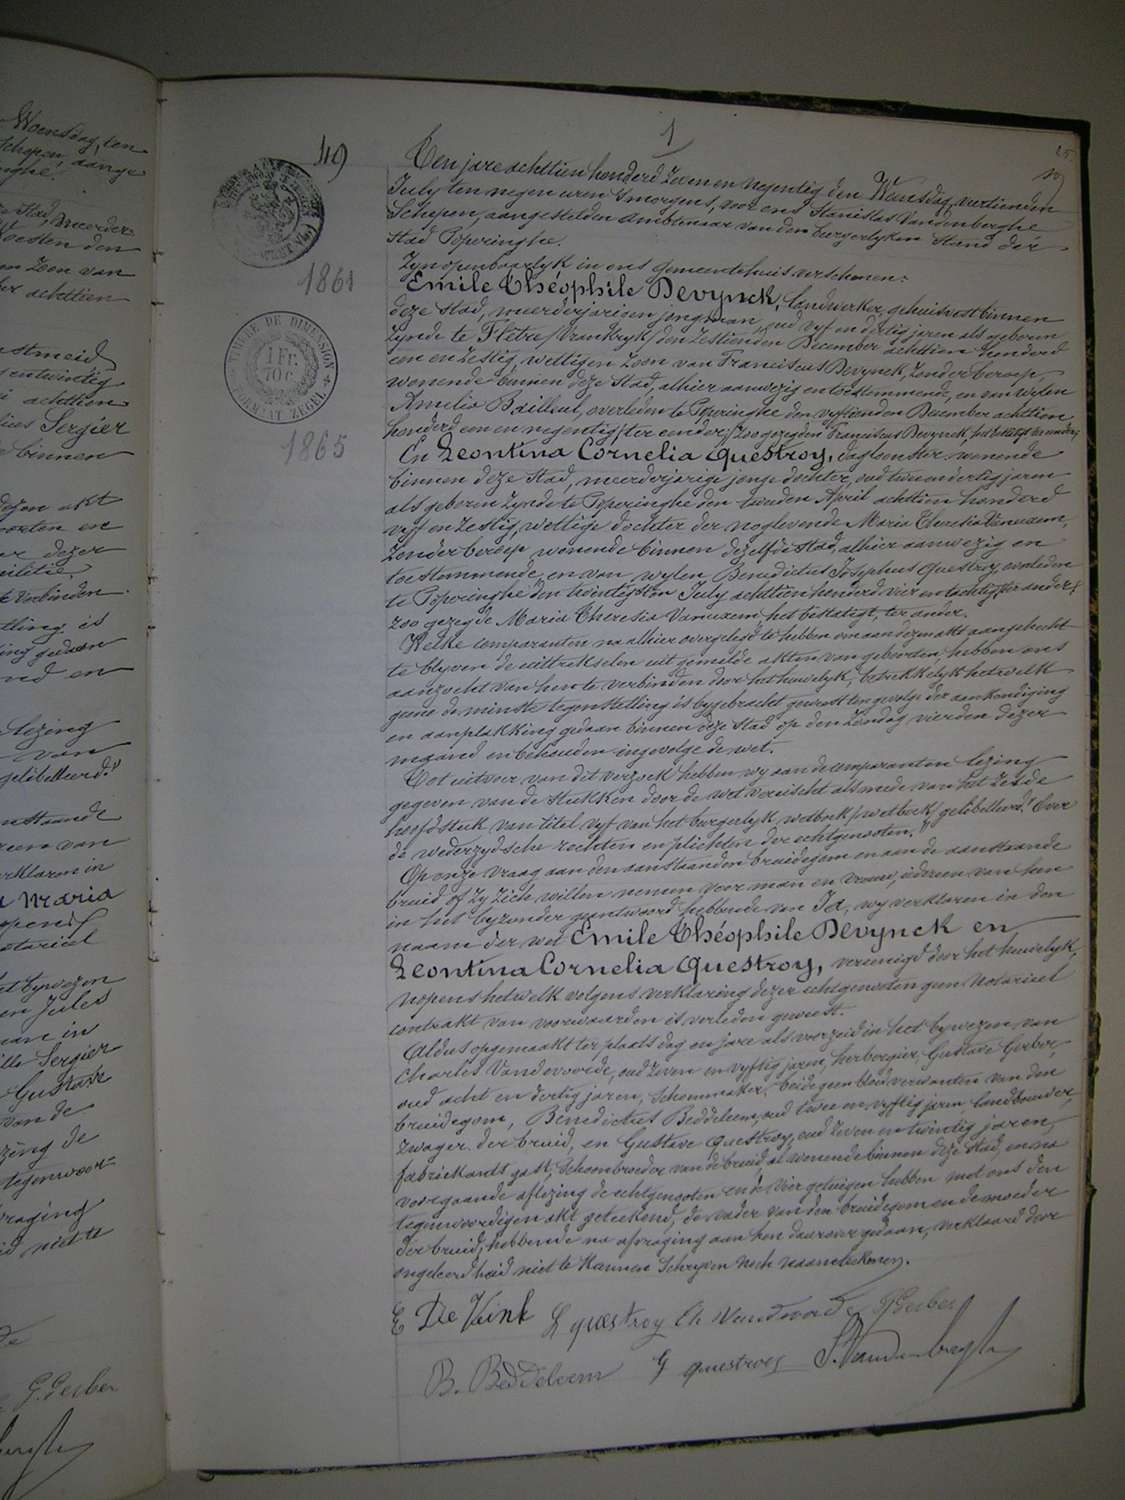 Woensdag, den
Schepen, aange
inghe.
Stad, meerder-
Zoon van
achttien
astmeid
entwintig
achttien
Sergier
binnen
akt
en
dezer
militie
verbinden.
is
gedaan
en
lezing
van
gelibelleerd"
enstaande
van
in
Maria
opens
Notariëel
bywezen
en Jules
in
Sergier
Gustave
van de
de
tegenwoor-
raging
niet te
de
G. Gerber
49
1
1861
TIMBRE DE DIMENSION
1 FR.
70 C.
FORMAT ZEGEL
1865
Ten jare achttien honderd zeven en negentig den Woensdag, veertienden
July ten negen uren 's morgens, voor ons Stanislas Vandenberghe
Schepen, aangestelden Ambtenaar van den burgerlyken Stand der
Stad Poperinghe.
Zyn openbaarlyk in ons gemeentehuis verschenen:
Emile Théophile Devynck, landwerker, gehuisvest binnen
deze Stad, meerderjarigen jongman, oud vyf en dertig jaren als geboren
zynde te Flêtre / Vrankryk / den zestienden December achttien honderd
een en zestig, wettigen zoon van Franciscus Devynck, zonder beroep,
wonende binnen deze Stad, alhier aanwezig en toestemmende, en van wylen
Amelia Bailleul, overleden te Poperinghe den vyftienden December achttien
honderd een en negentig, ter eender / zoo gezegden Franciscus Devynck, het bestatigt ter eender;
En Leontina Cornelia Questroy, dagloonster wonende
binnen deze Stad, meerderjarige jonge dochter, oud twee en dertig jaren
als geboren zynde te Poperinghe den tweeden April achttien honderd
vyf en zestig, wettige dochter der noglevende Maria Theresia Vanuxem,
zonder beroep wonende binnen dezelfde Stad, alhier aanwezig en
toestemmende, en van wylen Benedictus Josephus Questroy, overleden
te Poperinghe den twintigsten July achttien honderd vier en tachtig, ter ander /
zoo gezegde Maria Theresia Vanuxem, het bestatigt, ter ander.
Welke comparanten na alhier overgelegd te hebben om aan dezen akt aangehecht
te blyven de uittrekselen uit gemelde akten van geboorten, hebben ons
aanzocht van hen te verbinden door het huwelyk, betrekkelyk hetwelk
geene de minste tegenstelling is bygebracht geweest ten gevolge der aankondiging
en aanplakking gedaan binnen deze Stad op den Zondag vierden dezer
maand en behouden ingevolge de wet.
Tot uitvoer van dit verzoek hebben wy aan de comparanten lezing
gegeven van de stukken door de wet vereischt alsmede van het zesde
hoofdstuk van titel vyf van het burgerlyk wetboek / wetboek / gelibelleerd "Over
de wederzydsche rechten en plichten der echtgenooten."
Op onze vraag aan den aanstaanden bruidegom en aan de aanstaande
bruid of zy zich willen nemen voor man en vrouw, iedereen van hen
in het byzonder geantwoord hebbende van Ja, wy verklaren in den
naam der wet Emile Théophile Devynck en
Leontina Cornelia Questroy, vereenigd door het huwelyk,
nopens hetwelk volgens verklaring dezer echtgenooten geen Notariëel
contrakt van voorwaarden is verleden geweest.
Aldus opgemaakt ter plaats dag en jare als voorzeid in het bywezen van
Charles Vandevoorde, oud zeven en vyftig jaren, herbergier, Gustave Gerber,
oud acht en dertig jaren, Schoenmaker, beide geen bloedverwanten van den
bruidegom, Benedictus Beddeleem, oud twee en vyftig jaren, landbouwer,
zwager der bruid, en Gustave Questroy, oud zeven en twintig jaren,
fabriekants gast, Schoonbroeder van de bruid, al wonende binnen deze Stad, en na
voorgaande aflezing de echtgenooten en de vier getuigen hebben met ons den
tegenwoordigen akt geteekend, de vader van den bruidegom en de moeder
der bruid, hebbende na afvraging aan hen daarover gedaan, verklaard door
ongeleerdheid niet te kunnen Schryven noch naamteekenen.
E De Vink L questroy Ch Vandevoorde G. Gerber
B. Beddeleem G questroy S. Vandenberghe